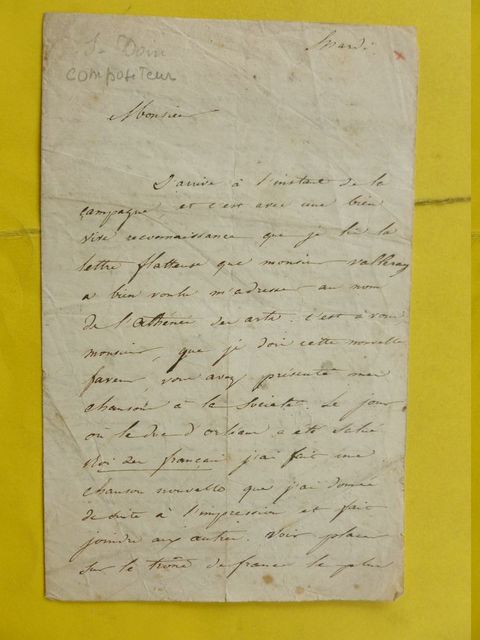 J. Doin
compositeur
Mardi
Monsieur
J'arrive à l'instant de la
campagne, et c'est avec une bien
vive reconnaissance que je lis la
lettre flatteuse que monsieur valleray
a bien voulu m'adresser au nom
de l'athénée des arts. c'est à vous
monsieur, que je dois cette nouvelle
faveur, vous avez présenté mes
chansons à la société. Le jour
où le duc d'orléans a été salué
Roi des français j'ai fait une
chanson nouvelle que j'ai donnée
de suite à l'impression et fait
joindre aux autres. Voir placer
sur le trône de france le plus